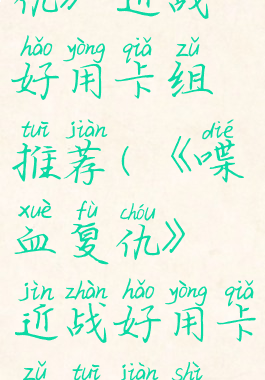 仇》近战
hǎo yòng qiǎ zǔ
好用卡组
tuī jiàn dié
推荐(《喋
xuè fù chóu
血复仇》
jìn zhàn hǎo yòng qiǎ
近战好用卡
zǔ tuī jiàn shì